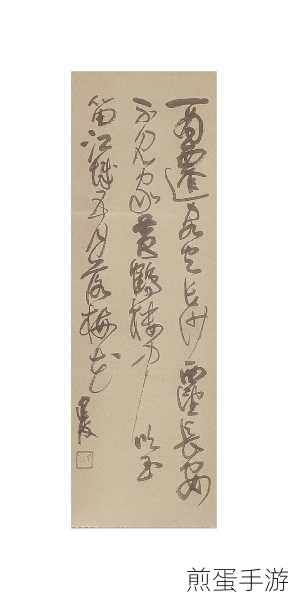 一為遷客去長沙西望長安
不見家黃鶴樓中吹玉
笛江城五月落梅花
煎蛋手游